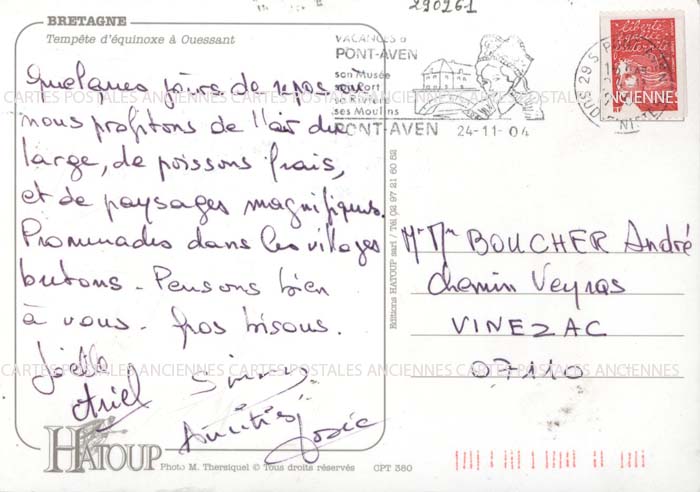 290261
BRETAGNE
Tempête d'équinoxe à Ouessant
Quelques jours de repos où
nous profitons de l'air du
large, de poissons frais,
et de paysages magnifiques.
Promenades dans les villages
bretons. Pensons bien
à vous. Gros bisous.
Joëlle
Ariel
Simon
Amitiés
Josie
HATOUP
Photo M. Thersiquel © Tous droits réservés CPT 380
Editions HATOUP sarl / Tél 02 97 21 60 52
VACANCES à
PONT-AVEN
son Musée
son Port
sa Rivière
ses Moulins
PONT-AVEN 24-11-04
liberté
égalité
fraternité
RF
29 S
SUD FINISTERE
Mr Mme BOUCHER André
Chemin Veyras
VINEZAC
07110
CARTES POSTALES ANCIENNES CARTES POSTALES ANCIENNES CARTES POSTALES ANCIENNES
CARTES POSTALES ANCIENNES CARTES POSTALES ANCIENNES CARTES POSTALES ANCIENNES